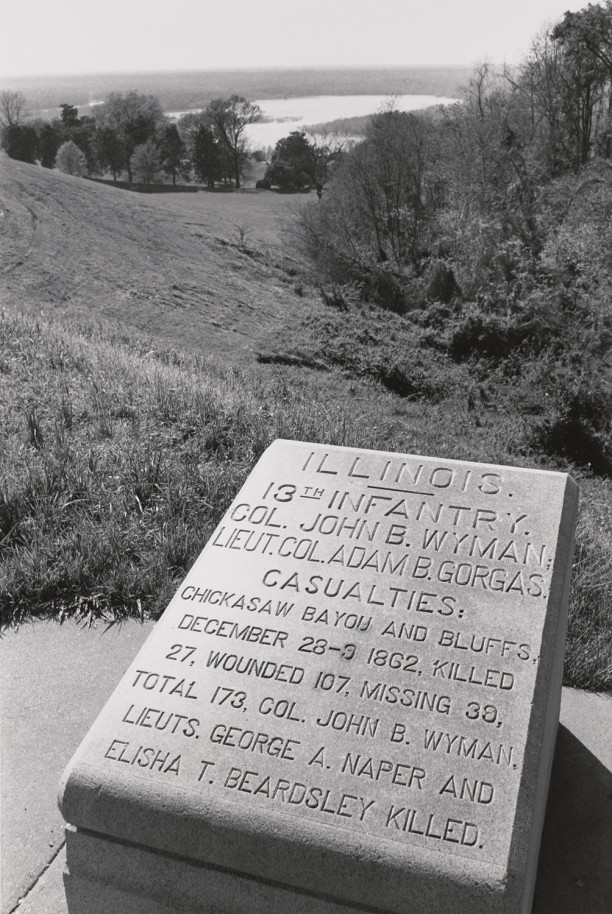 ILLINOIS.
13TH INFANTRY.
COL. JOHN B. WYMAN;
LIEUT. COL. ADAM B. GORGAS.
CASUALTIES:
CHICKASAW BAYOU AND BLUFFS,
DECEMBER 28-9 1862, KILLED
27, WOUNDED 107, MISSING 39,
TOTAL 173, COL. JOHN B. WYMAN,
LIEUTS. GEORGE A. NAPER AND
ELISHA T. BEARDSLEY KILLED.